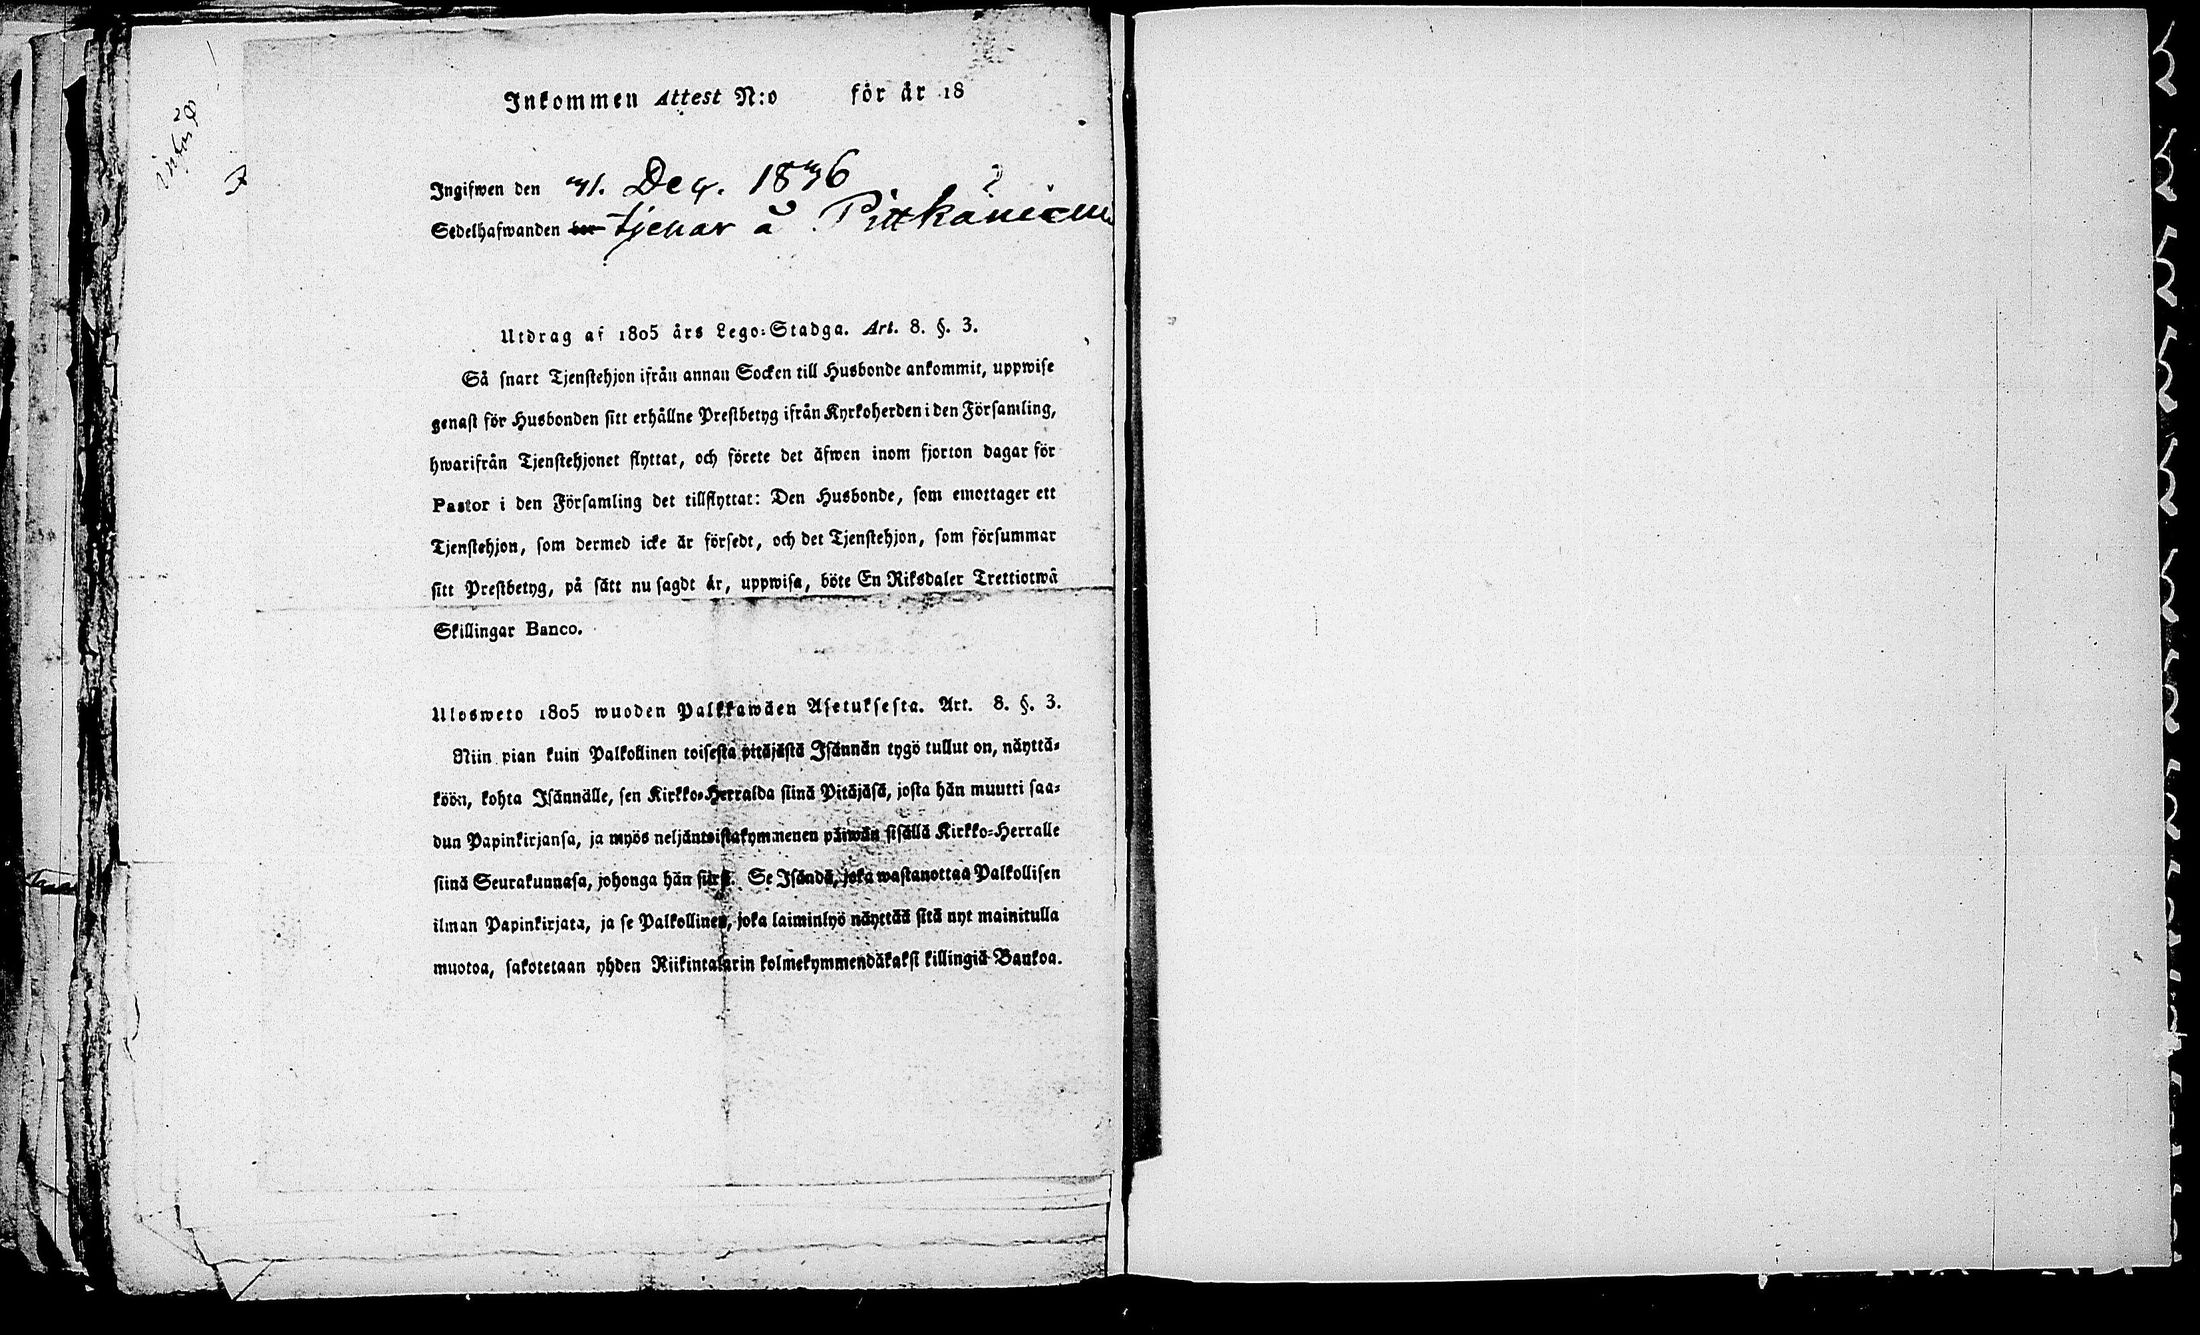 Inkommen Attest N:o för år 18
Ingifwen den 31. Dec. 1836
Sedelhafwanden bor tjenar å
Utdrag af 1805 års Lego-Stadga. Art. 8. §. 3.
Så snart Tjenstehjon ifrån annan Socken till Husbonde ankommit, uppwise
genast för Husbonden sitt erhållne Prestbetyg ifrån Kyrkoherden i den Församling,
hwarifrån Tjenstehjonet flyttat, och förete det äfwen inom fjorton dagar för
Pastor i den Församling det tillflyttat: Den Husbonde, som emottager ett
Tjenstehjon, som dermed icke är försedt, och det Tjenstehjon, som försummar
sitt Prestbetyg, på sätt nu sagdt är, uppwisa, böte En Riksdaler Trettiotwå
Skillingar Banco.
Ulosweto 1805 wuoden Palkkawäen Asetuksesta. Art. 8. §. 3.
Niin pian kuin Palkollinen toisesta pitäjästä Isännän tygö tullut on, näyttä-
köön, kohta Isännälle, sen Kirkko-Herralda siinä Pitäjäsä, josta hän muutti saa-
dun Papinkirjansa, ja myös neljäntoistakymmenen päiwän sisällä Kirkko-Herralle
siinä Seurakunnasa, johonga hän siirsi. Se Isändä, joka wastanottaa Palkollisen
ilman Papinkirjata, ja se Palkollinen, joka laiminlyö näyttää sitä nyt mainitulla
muotoa, sakotetaan yhden Riikintalarin kolmekymmendäkaksi killingiä Bankoa.